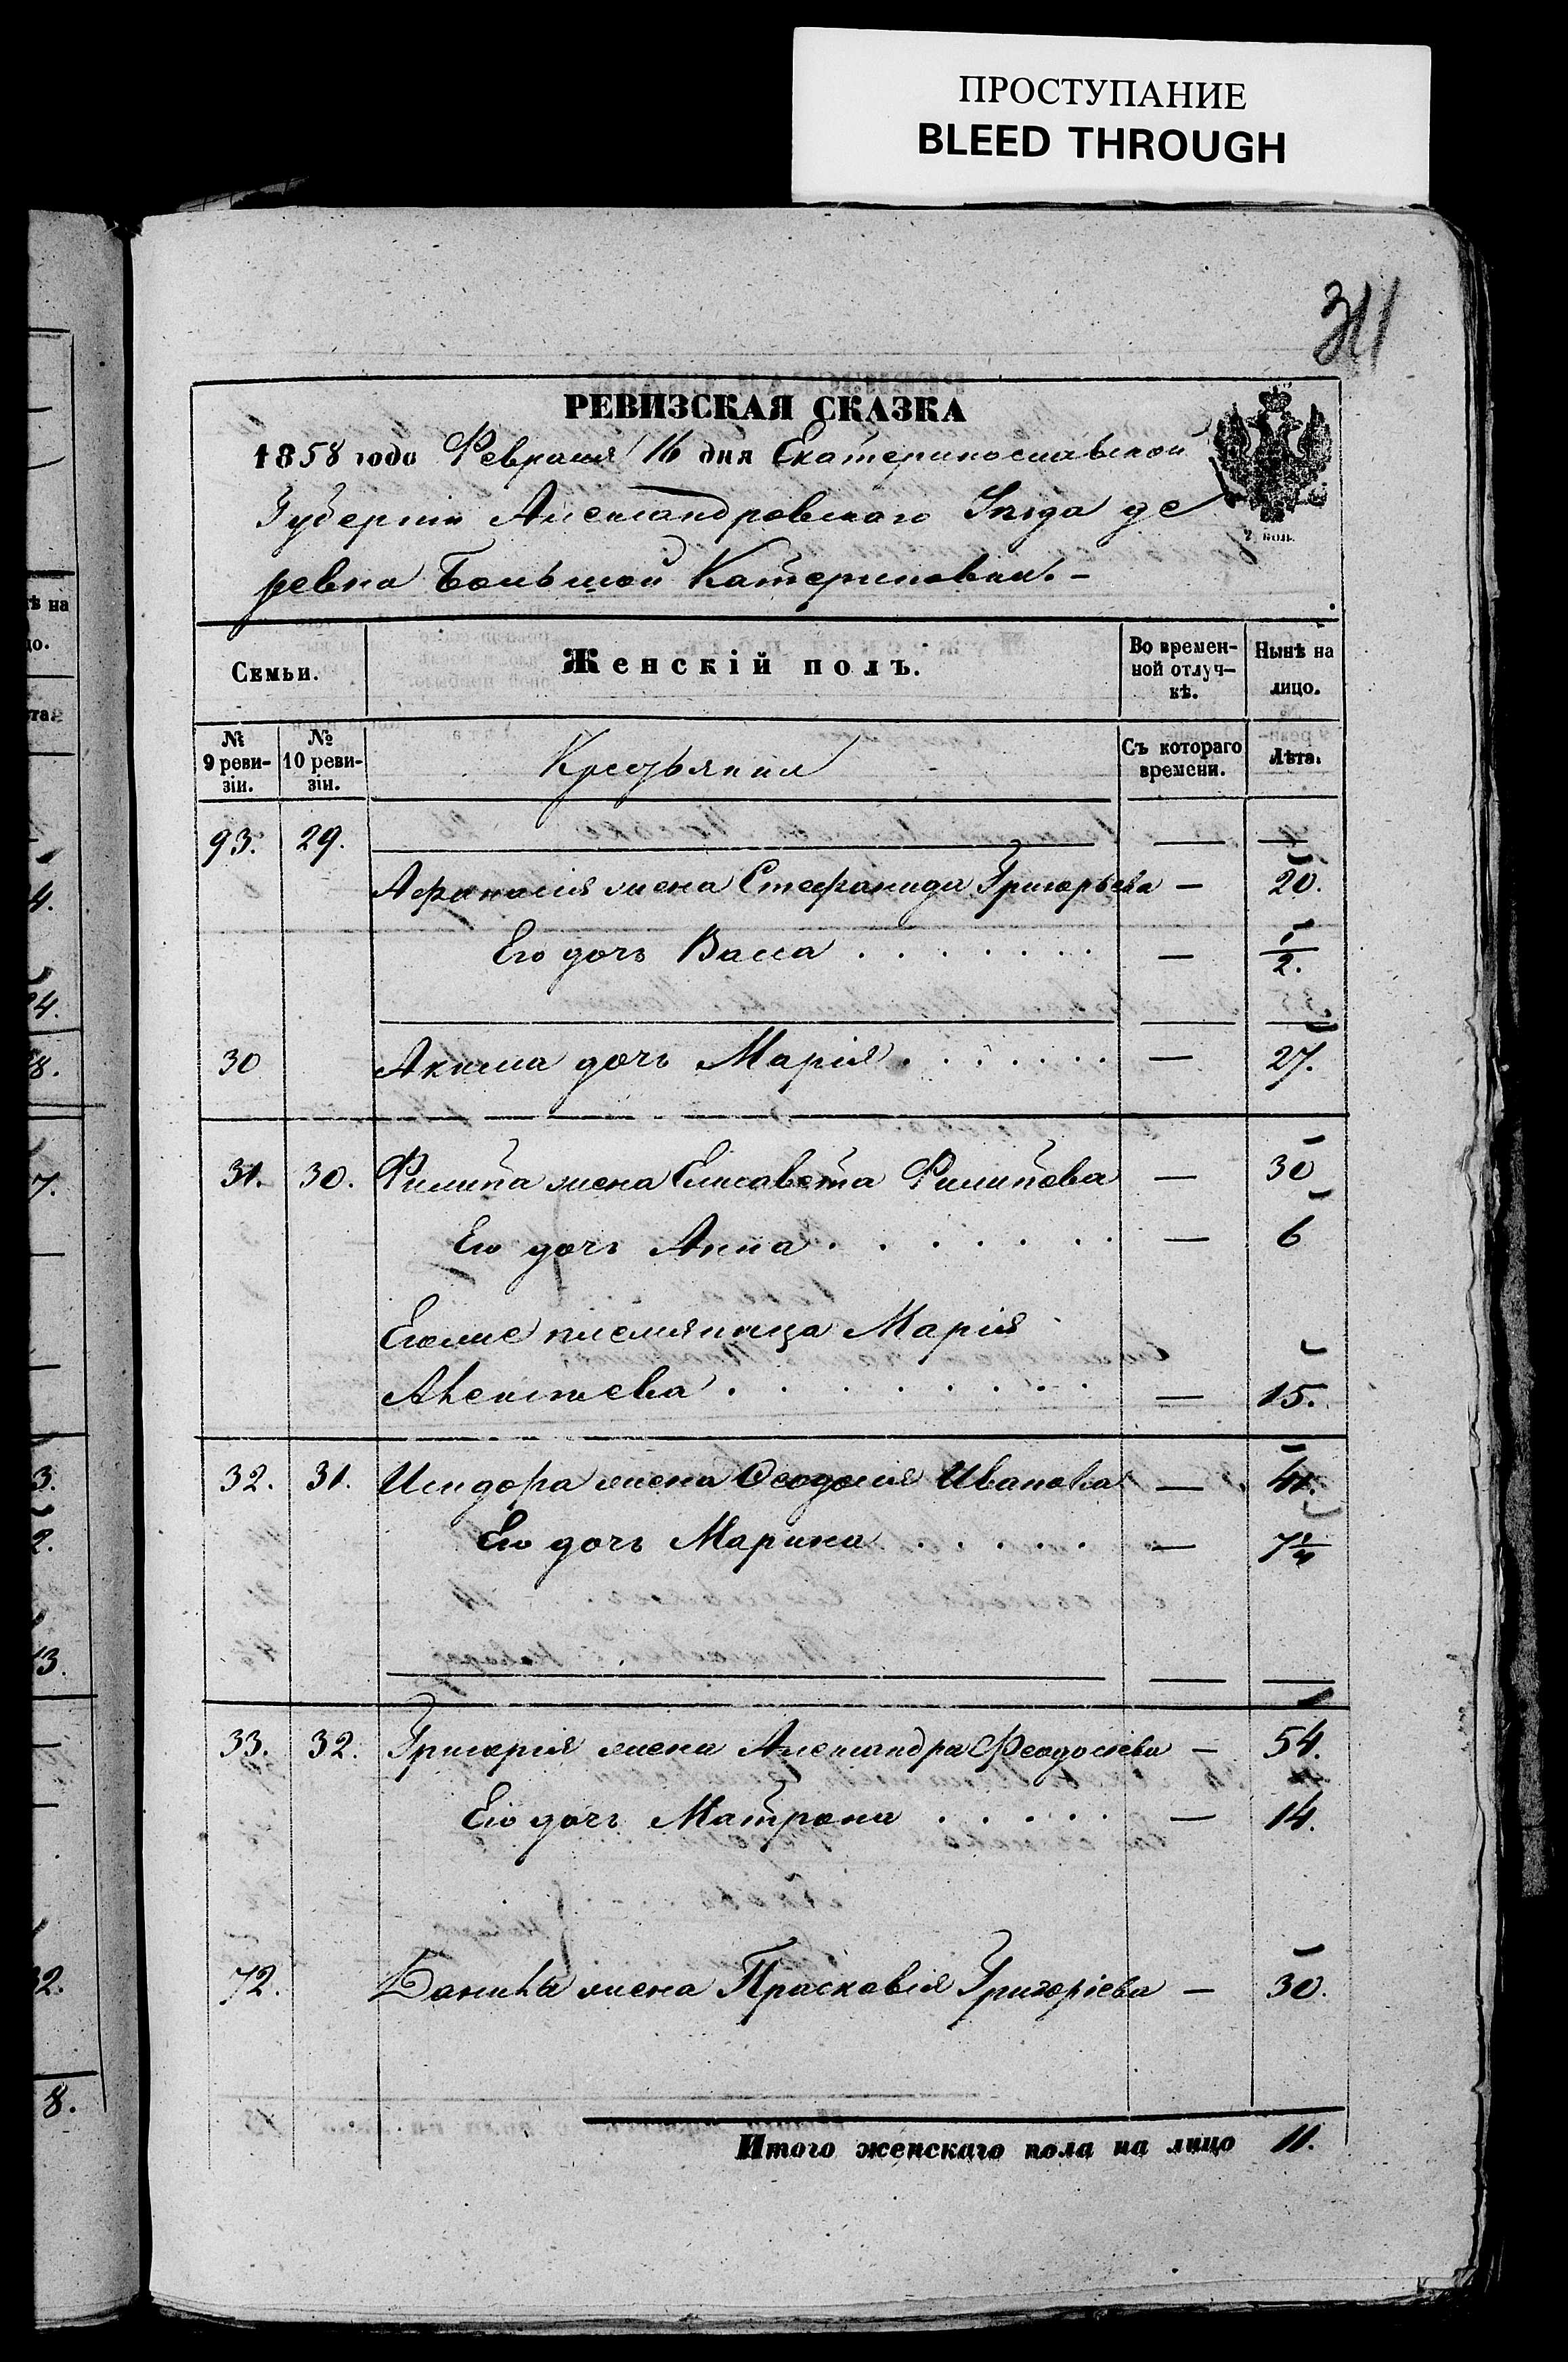 ПРОСТУПАНИЕ
BLEED THROUGH
311
РЕВИЗСКАЯ СКАЗКА
1858 года Февраля 16 дня Екатеринославской
Губерніи Александровскаго Уѣзда де
ревни Большой Катериновки.-
Семьи.
Женскій полъ.
Во времен-
ной отлуч-
кѣ.
Нынѣ на
лицо.
№
9 реви-
зіи.
№
10 реви-
зіи.
Крестьянки
Съ котораго
времени.
Лѣта.
93. 29. — —
Афанасія жена Стефанида Григорьева — 20.
Его дочь Васса . . . . . . . — 1/2.
30 Акима дочь Марія . . . . . . — 27.
31. 30. Филипа жена Елисавета Филипова — 30
Его дочь Анна . . . . . . . — 6
Егоже племяница Марія
Алексѣева . . . . . . . — 15.
32. 31. Исидора жена Феодосія Иванова — 41.
Его дочь Марина . . . . . — 7 1/4
33. 32. Григорія жена Александра Феодосіева — 54.
Его дочь Матрона . . . . . — 14.
72. Данила жена Прасковія Григоріева — 30.
Итого женскаго пола на лицо 11.